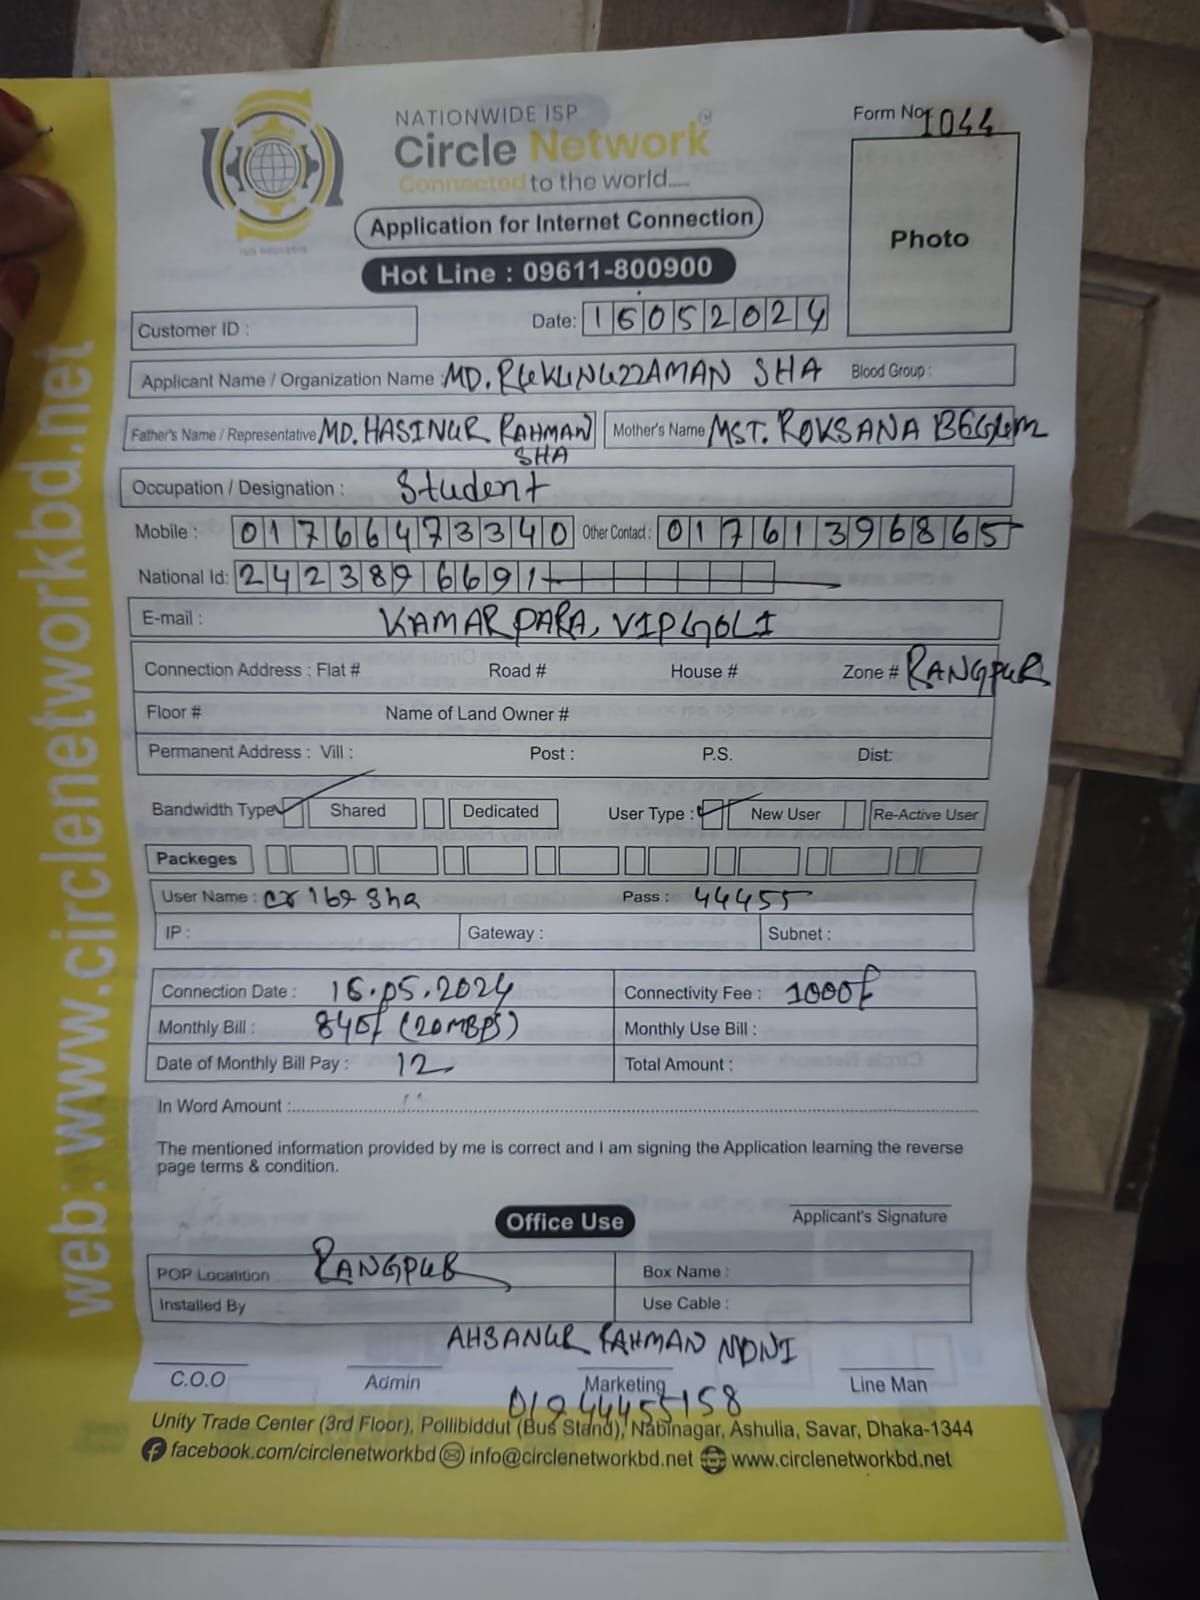 NATIONWIDE ISP
Circle Network
Connected to the world.....
Form No: 1044
Photo
Application for Internet Connection
Hot Line : 09611-800900
Customer ID :
Date: 16052024
Applicant Name / Organization Name : MD. RUKUNUZZAMAN SHA Blood Group :
Father's Name / Representative MD. HASINUR RAHMAN SHA Mother's Name MST. ROKSANA BEGUM
Occupation / Designation : Student
Mobile : 01766473340 Other Contact : 01761396865
National Id: 2423896691
E-mail : KAMARPARA, VIP GOLI
Connection Address : Flat # Road # House # Zone # RANGPUR
Floor # Name of Land Owner #
Permanent Address : Vill : Post : P.S. Dist:
Bandwidth Type Shared Dedicated User Type : New User Re-Active User
Packeges
User Name : Sha Pass : 44455
IP : Gateway : Subnet :
Connection Date : 16.05.2024 Connectivity Fee : 1000/
Monthly Bill : 840/ (20MBPS) Monthly Use Bill :
Date of Monthly Bill Pay : 12 Total Amount :
In Word Amount :
The mentioned information provided by me is correct and I am signing the Application learning the reverse
page terms & condition.
Applicant's Signature
Office Use
POP Locatition RANGPUR Box Name :
Installed By Use Cable :
AHSANUR RAHMAN
C.O.O Admin Marketing Line Man
Unity Trade Center (3rd Floor), Pollibiddut (Bus Stand), Nabinagar, Ashulia, Savar, Dhaka-1344
facebook.com/circlenetworkbd info@circlenetworkbd.net www.circlenetworkbd.net
web: www.circlenetworkbd.net